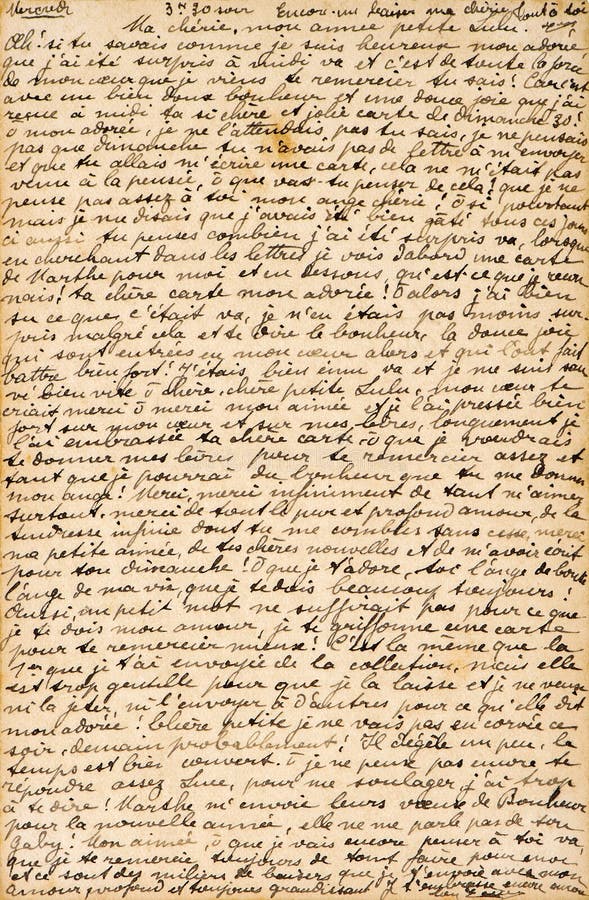 Mercredi 3h 30 soir Encore un baiser ma chérie tout à toi
Ma chérie, mon aimée petite Lulu.
Oh! si tu savais comme je suis heureux mon adorée
que j'ai été surpris à midi va et c'est de toute la force
de mon cœur que je viens te remercier tu sais! Car c'est
avec un bien doux bonheur et une douce joie que j'ai
reçue à midi ta si chère et jolie carte de dimanche 30!
O mon adorée, je ne l'attendais pas tu sais, je ne pensais
pas que dimanche tu n'avais pas de lettre à m'envoyer
et que tu allais m'écrire une carte, cela ne m'était pas
venu à la pensée, ô que vas-tu penser de cela! que je ne
pense pas assez à toi mon ange chérie! O si pourtant
mais je me disais que j'avais été bien gâté tous ces jours
ci aussi tu penses combien j'ai été surpris va, lorsque
en cherchant dans les lettres je vois d'abord une carte
de Marthe pour moi et en dessous, qu'est-ce que je recon
nais! ta chère carte mon adorée! O alors j'ai bien
su ce que c'était va, je n'en étais pas moins sur-
pris malgré cela et te dire le bonheur, la douce joie
qui sont entrées en mon cœur alors et qui l'ont fait
battre bien fort! J'étais bien ému va et je me suis sau
vé bien vite ô chère, chère petite Lulu, mon cœur te
criait merci ô merci mon aimée et je l'ai pressée bien
fort sur mon cœur et sur mes lèvres, longuement je
l'ai embrassée ta chère carte, ô que je voudrais
te donner mes lèvres pour te remercier assez et
tant que je pourrai du bonheur que tu me donnes
mon ange! Merci, merci infiniment de tant m'aimer
surtout, merci de tout le pur et profond amour, de la
tendresse infinie dont tu me combles sans cesse, merci
ma petite aimée, de tes chères nouvelles et de m'avoir écrit
pour ton dimanche! O que je t'adore, toi l'ange de bonté
l'ange de ma vie, que je te dois beaucoup toujours!
Aussi, un petit mot ne suffirait pas pour ce que
je te dois mon amour, je te griffonne une carte
pour te remercier mieux! C'est la même que la
1ère que je t'ai envoyée de la collection, mais elle
est trop gentille pour que je la laisse et je ne veux
ni la jeter, ni l'envoyer à d'autres pour ce qu'elle dit
mon adorée! Chère petite je ne vais pas en corvée ce
soir, demain probablement! Il dégèle un peu, le
temps est bien couvert. O je ne peux pas encore te
répondre assez Luce, pour me soulager j'ai trop
à te dire! Marthe m'envoie leurs vœux de Bonheur
pour la nouvelle année, elle ne me parle pas de son
Gaby! Mon aimée, ô que je vais encore penser à toi va,
que je te remercie toujours de tout faire pour moi
et ce sont des milliers de baisers que je t'envoie avec mon
amour profond et toujours grandissant Je t'embrasse encore amour
ton